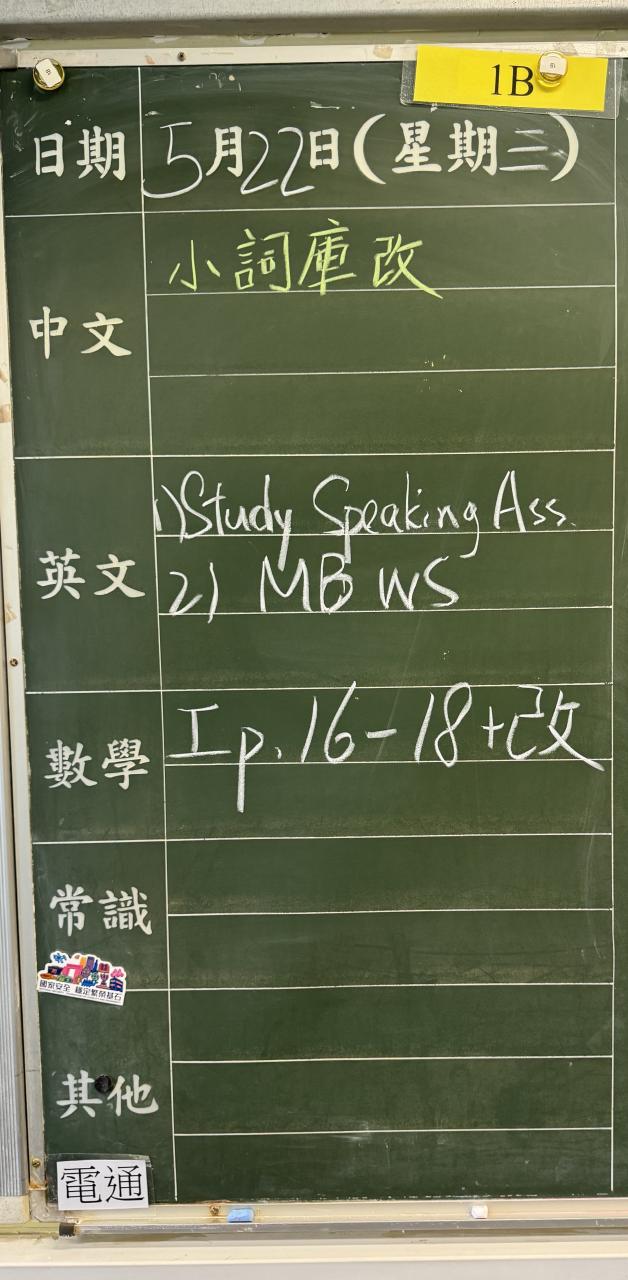 1B
日期 5月22日(星期三)
小詞庫改
中文
1) Study Speaking Ass.
英文 2) MB WS
數學 工 p. 16-18 + 改
常識
國家安全 穩定繁榮基石
其他
電通